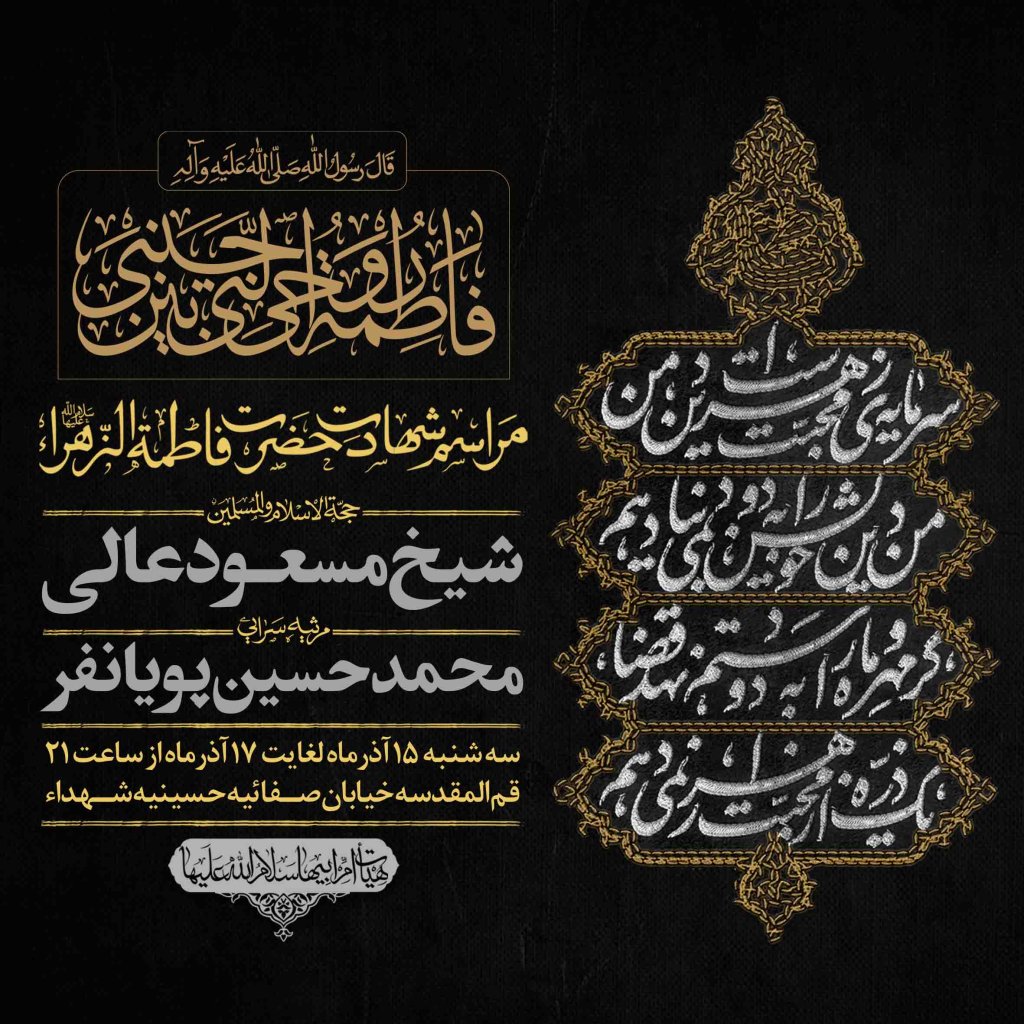 قَالَ رَسُولُ اللّٰهِ صَلَّی اللّٰهُ عَلَیْهِ وَآلِهِ
فَاطِمَةُ رُوحِیَ الَّتِی بَیْنَ جَنْبَیَّ
مراسم شهادت حضرت فاطمة الزهراء سلام‌الله‌علیها
حجة الاسلام والمسلمین
شیخ مسعود عالی
مرثیه سرایی
محمدحسین پویانفر
سه شنبه ۱۵ آذر ماه لغایت ۱۷ آذر ماه از ساعت ۲۱
قم المقدسه خیابان صفائیه حسینیه شهداء
هیأت ام ابیها سلام الله علیها
سرمایه‌ی محبت زهراست دین من
من دین خویش را به دو دنیا نمی‌دهم
گر مهر و ماه را به دو دستم نهد قضا
یک ذره از محبت زهرا نمی‌دهم